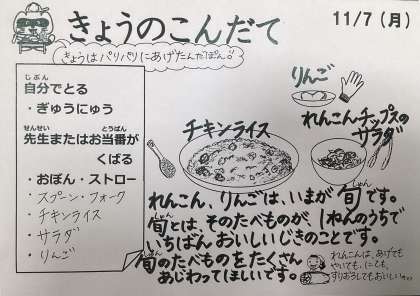 きょうのこんだて
11/7（月）
きょうはパリパリにあげたんだぽん。
じぶん
自分でとる
・ぎゅうにゅう
せんせい とうばん
先生またはお当番が
くばる
・おぼん・ストロー
・スプーン・フォーク
・チキンライス
・サラダ
・りんご
りんご
チキンライス
れんこんチップスの
サラダ
れんこん、りんごは、いまが旬です。
しゅん
旬とは、そのたべものが、1ねんのうちで
いちばんおいしいじきのことです。
旬のたべものをたくさん
あじわってほしいです。
れんこんは、あげても
やいても、にても、
すりおろしてもおいしい